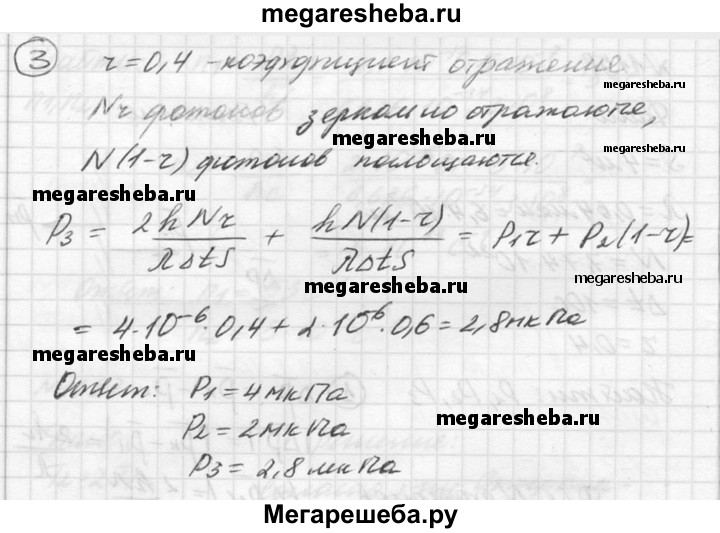 megaresheba.ru
3 r=0,4 - коэффициент отражение
megaresheba.ru
Nr фотонов зеркально отражаются,
megaresheba.ru
N(1-r) фотонов поглощаются.
megaresheba.ru
P₃ = 2hNr/λΔtS + hN(1-r)/λΔtS = P₁r + P₂(1-r)=
megaresheba.ru
= 4·10⁻⁶·0,4 + 2·10⁻⁶·0,6 = 2,8 мкПа
megaresheba.ru
Ответ: P₁ = 4 мкПа
megaresheba.ru
P₂ = 2 мкПа
P₃ = 2,8 мкПа
Мегарешеба.ру